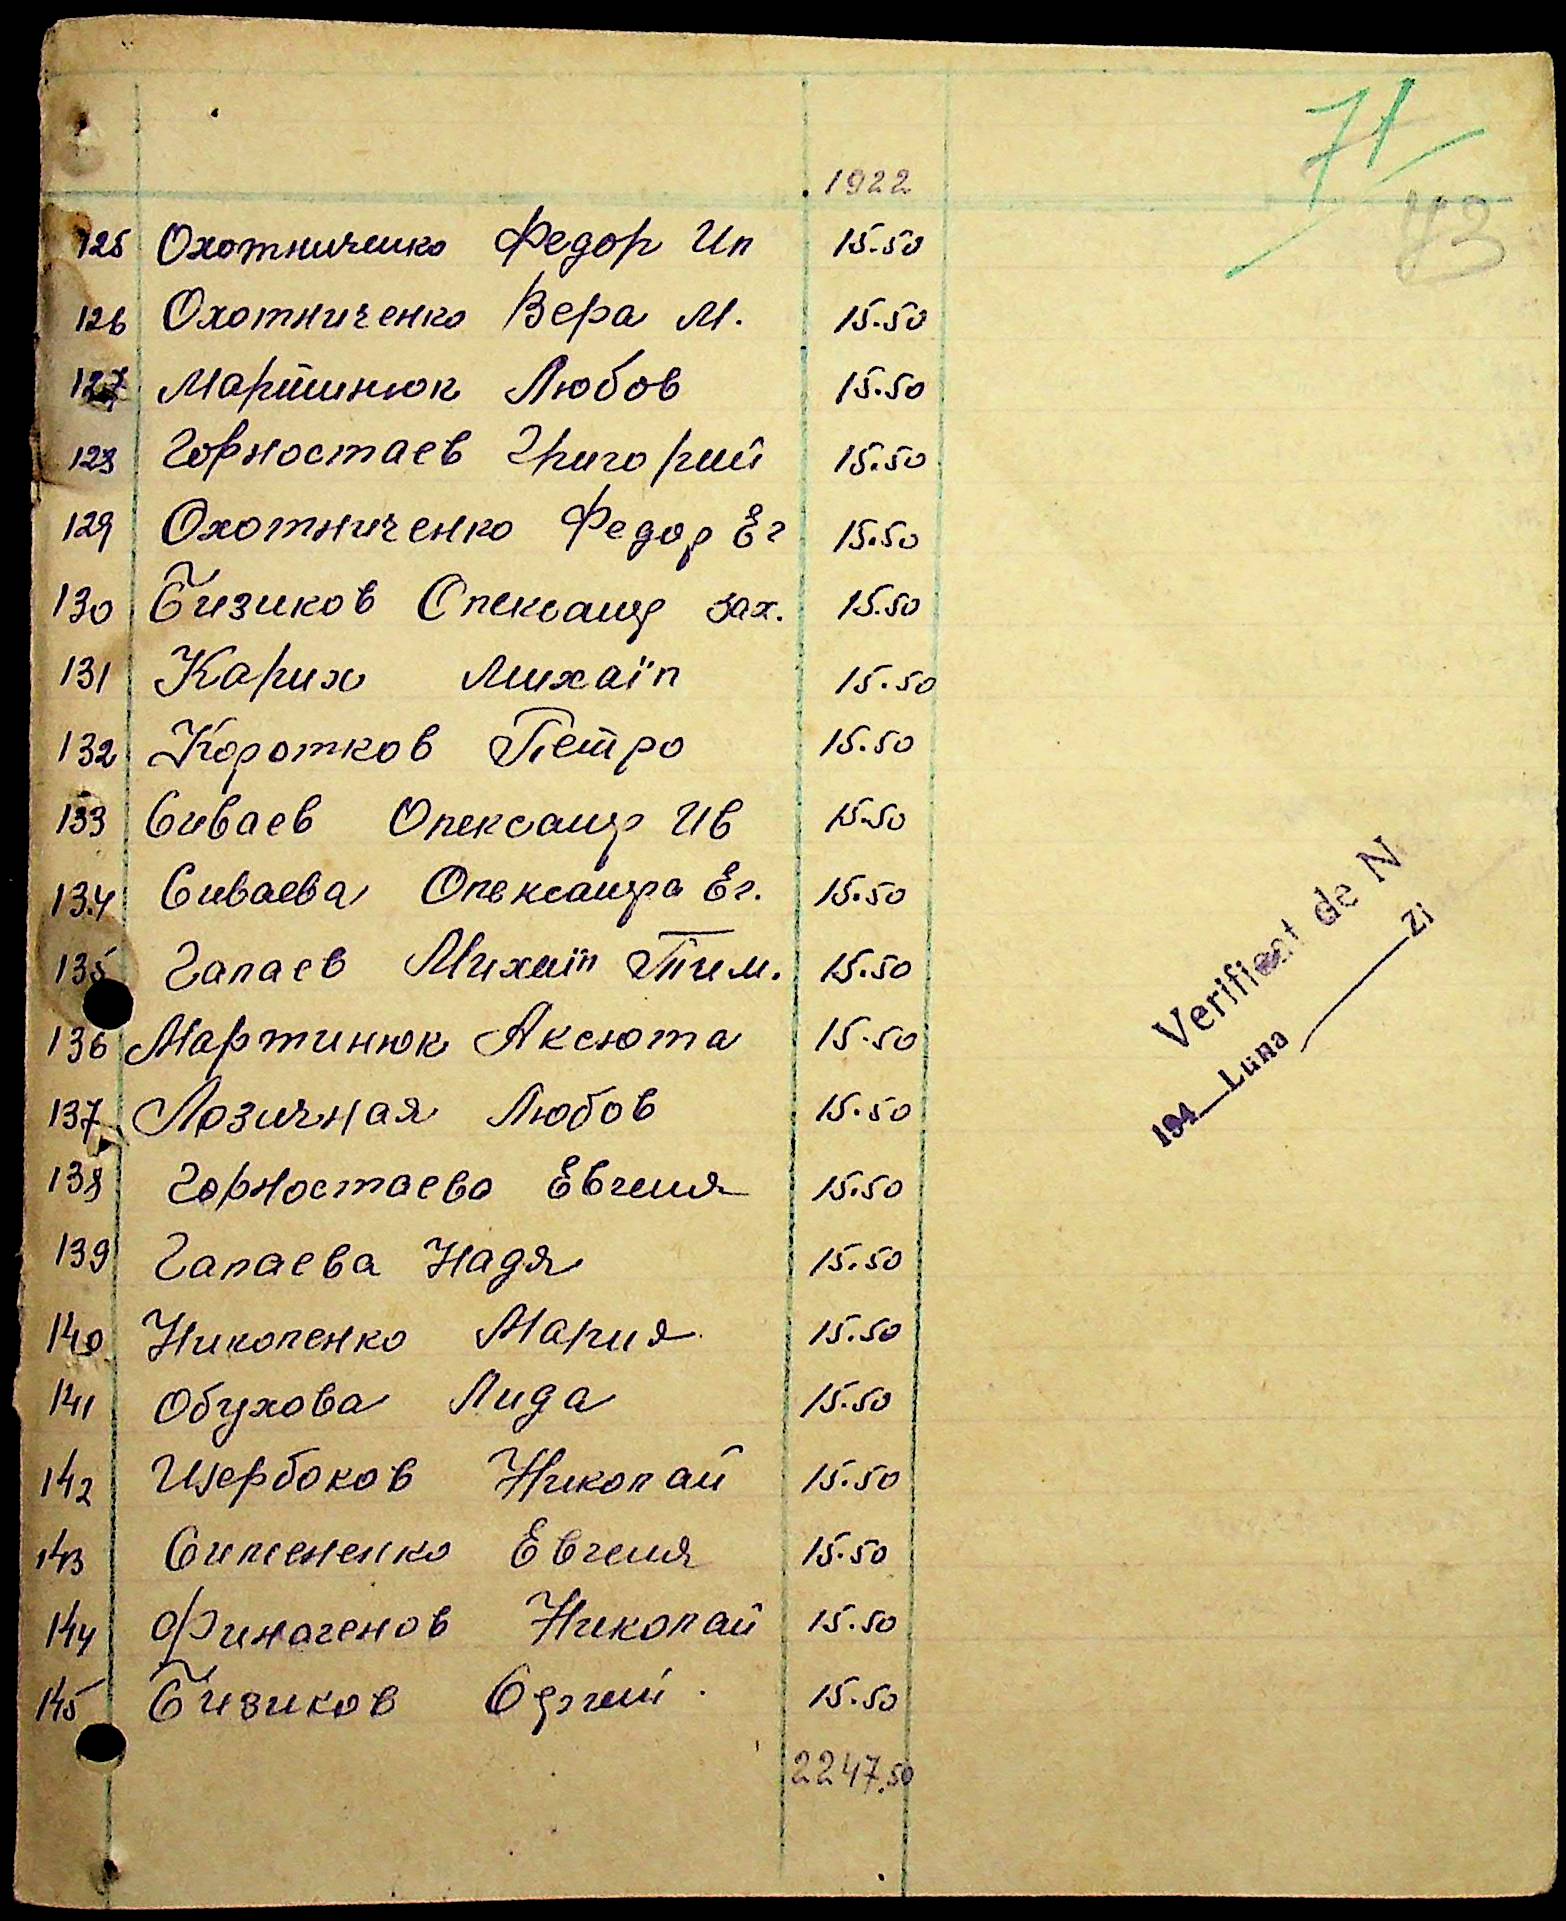 71
73
1922
125 Охотниченко Федор Ил 15.50
126 Охотниченко Вера М. 15.50
127 Мартинюк Любов 15.50
128 Горностаев Григорий 15.50
129 Охотниченко Федор Ег 15.50
130 Бизиков Олександ зах. 15.50
131 Карих Михаїл 15.50
132 Коротков Петро 15.50
133 Сиваев Олександ Ив 15.50
134 Сиваева Олександра Ег. 15.50
135 Галаев Михаїл Тим. 15.50
136 Мартинюк Аксюта 15.50
137 Лозичная Любов 15.50
138 Горностаева Евгения 15.50
139 Галаева Надя 15.50
140 Николенко Мария 15.50
141 Обухова Лида 15.50
142 Щербаков Николай 15.50
143 Евгения 15.50
144 Финагенов Николай 15.50
145 Бизиков Сергий 15.50
2247.50
Verificat de N
194 Luna Zi